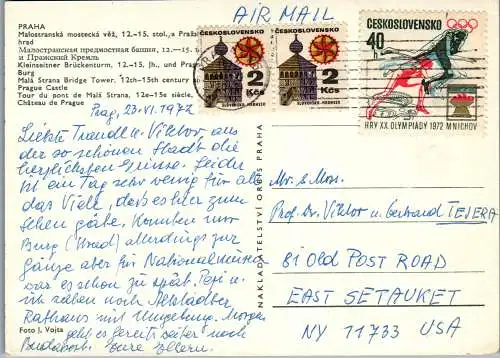 PRAHA
Malostranská mostecká věž, 12.-15. stol., a Pražský
hrad
Малостранская предмостная башня, 12.—15. в
и Пражский Кремль
Kleinseitner Brückenturm, 12.-15. Jh., und Prager
Burg
Malá Strana Bridge Tower, 12th-15th century
Prague Castle
Tour du pont de Malá Strana, 12e-15e siècle,
Château de Prague
AIR MAIL
ČESKOSLOVENSKO
2
Kčs
SLOVENSKO-HRONSEK
ČESKOSLOVENSKO
2
Kčs
SLOVENSKO-HRONSEK
ČESKOSLOVENSKO
40
h
HRY XX. OLYMPIÁDY 1972 MNICHOV
Prag, 23.VI.1972
Liebste Traudl u. Viktor, aus
der so schönen Stadt die
herzlichsten Grüsse. Leider
ist ein Tag sehr wenig für all
das Viele, das es hier zum
sehen gäbe. Konnten nur
Burg (Hrad) allerdings zur
gänze aber für Nationalmuseum
war es schon zu spät. Pepi u.
ich sahen noch Altstädter
Rathaus mit Umgebung. Morgen
geht es bereits weiter nach
Budapest. Eure Eltern.
Foto J. Vojta
NAKLADATELSTVÍ ORBIS PRAHA
Mr. & Mrs.
Prof. Dr. Viktor u. Gertraud TEJERA
81 Old POST ROAD
EAST SETAUKET
NY 11733 USA